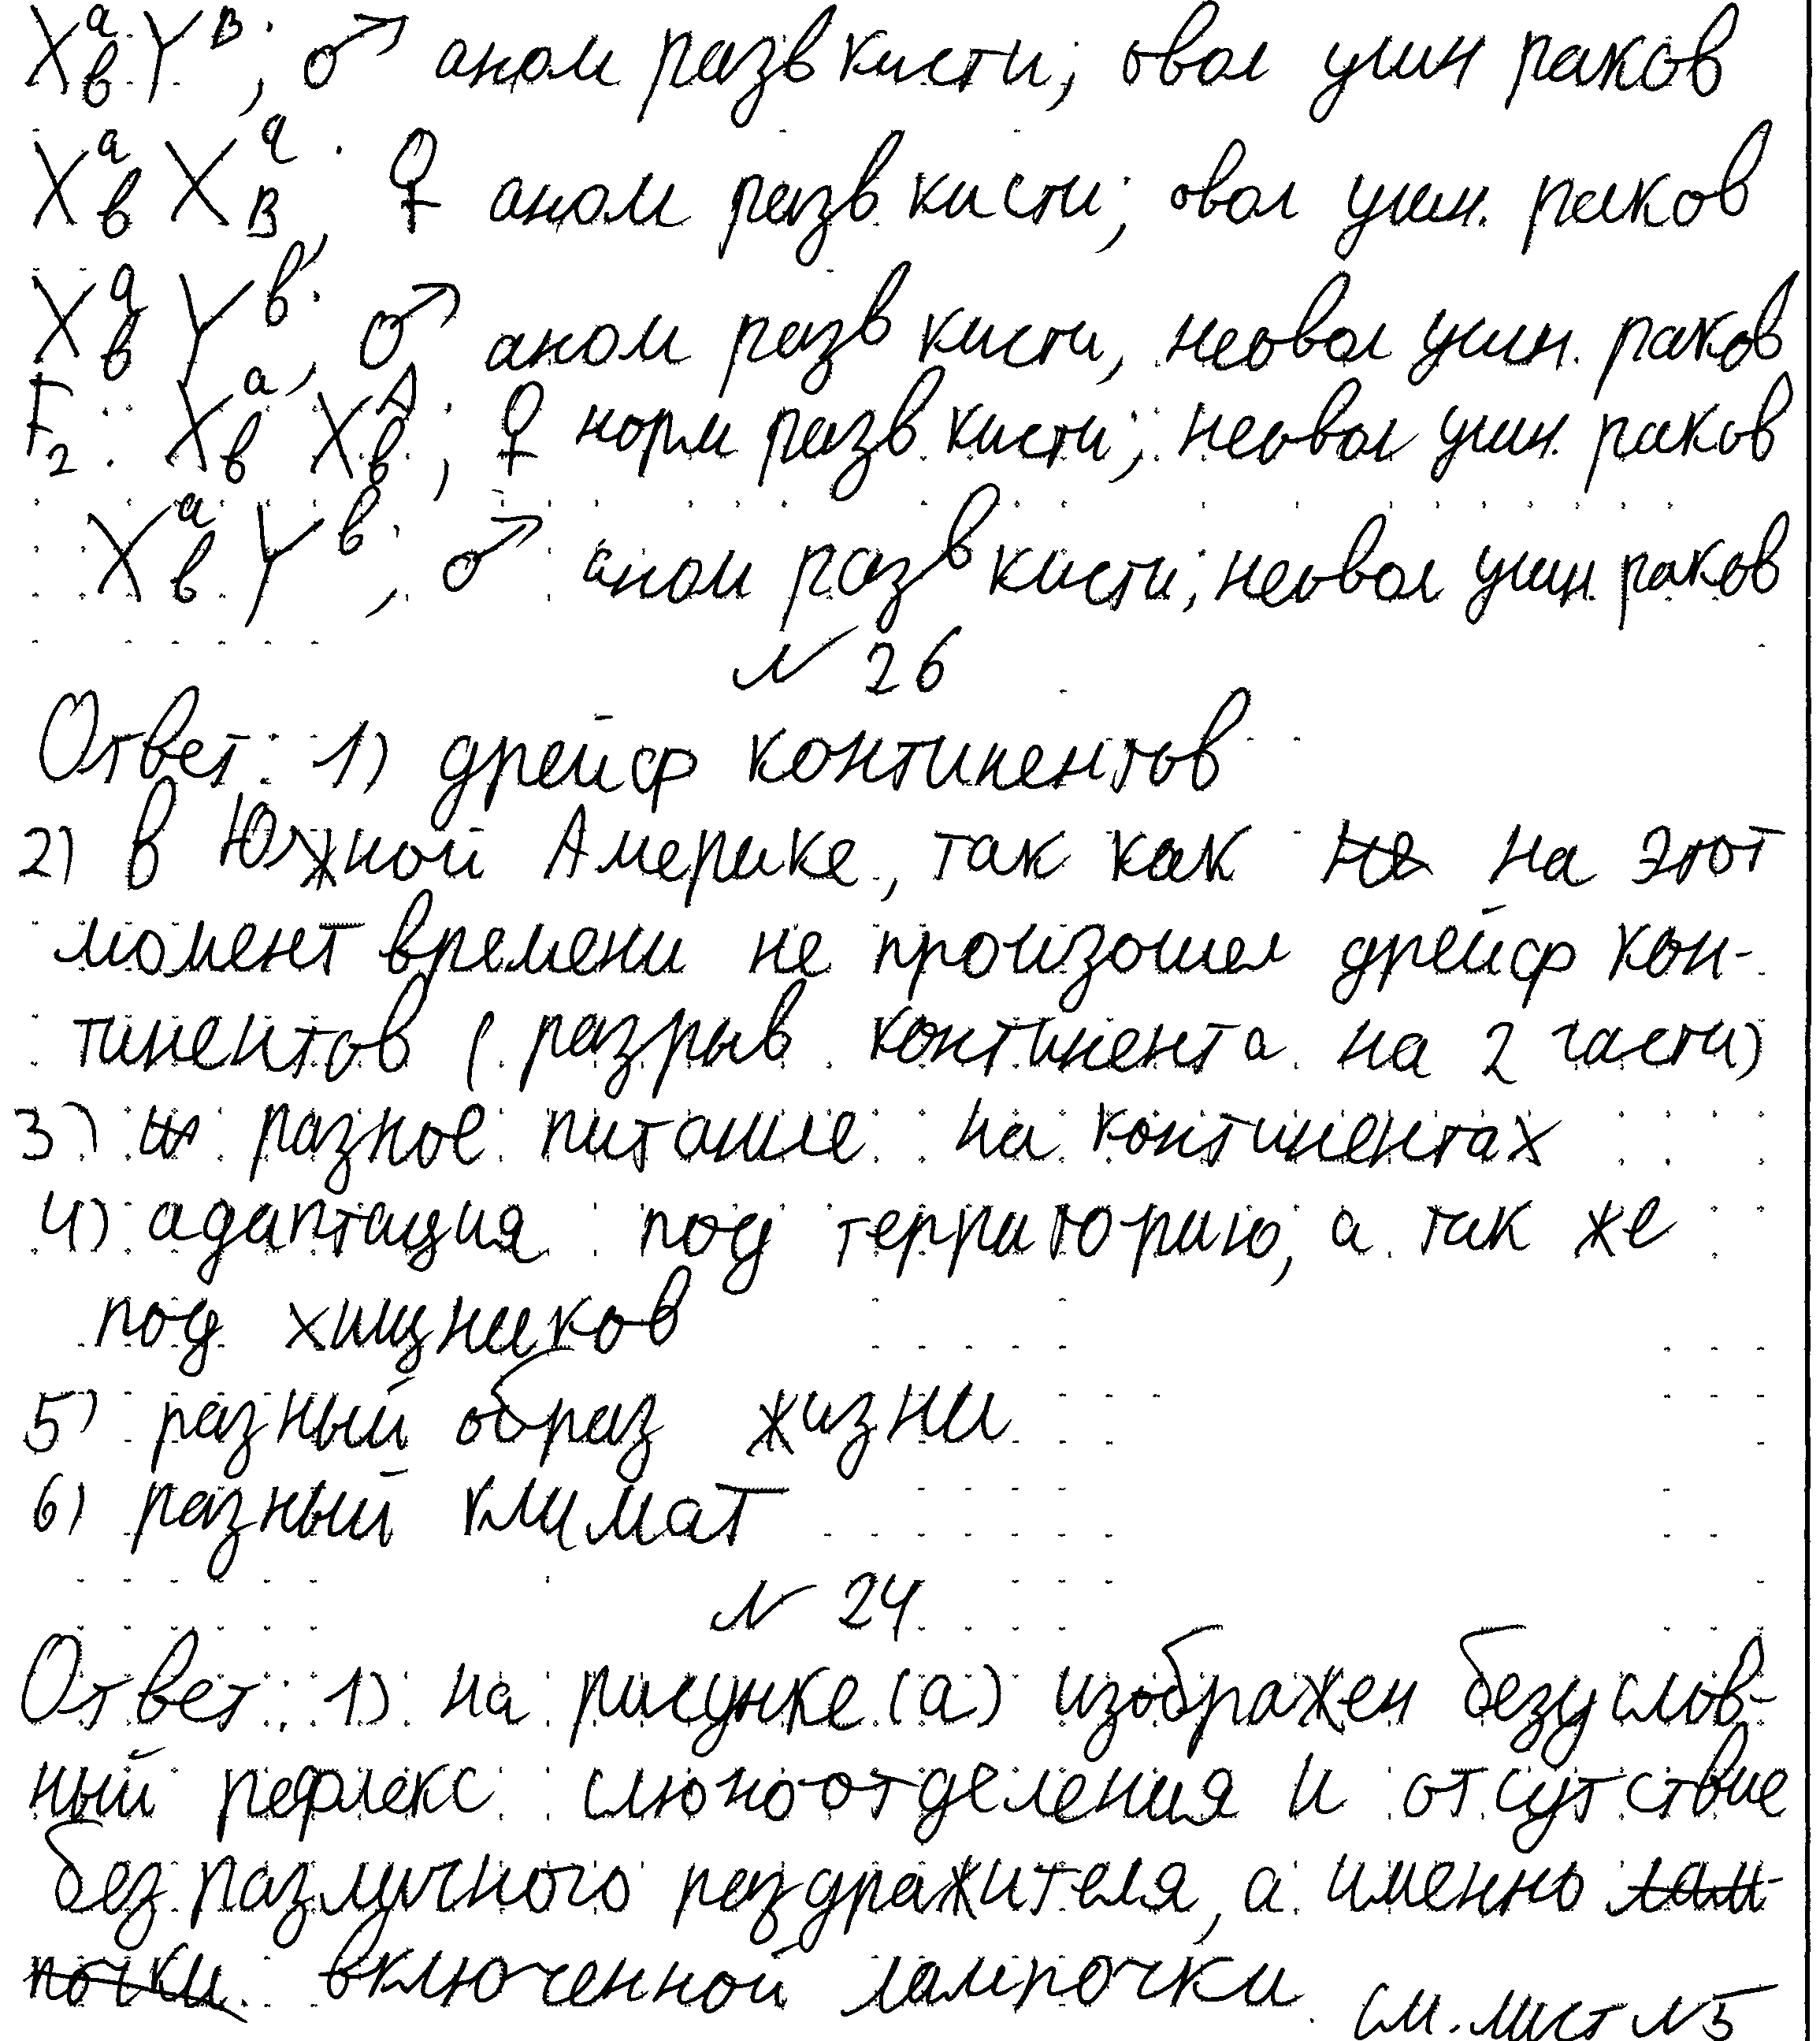 XᵃвYᴮ; ♂ аном разв кисти; овол ушн раков
XᵃвXᵃв; ♀ аном разв. кисти; овол ушн. раков
XᵃвYᵇ; ♂ аном разв кисти, неовол ушн. раков
F₂: XᵃвXᴬв; ♀ норм разв кисти; неовол ушн. раков
XᵃвYᵇ; ♂ аном разв кисти; неовол ушн раков
№ 26
Ответ: 1) дрейф континентов
2) в Южной Америке, так как не на этот
момент времени не произошел дрейф кон-
тинентов (разрыв континента на 2 части)
3) разное питание на континентах
4) адаптация под территорию, а так же
под хищников
5) разный образ жизни
6) разный климат
№ 24
Ответ: 1) на рисунке (а) изображен безуслов-
ный рефлекс слюноотделения и отсутствие
безразличного раздражителя, а именно лам-
почки включенной лампочки.
см. лист №5